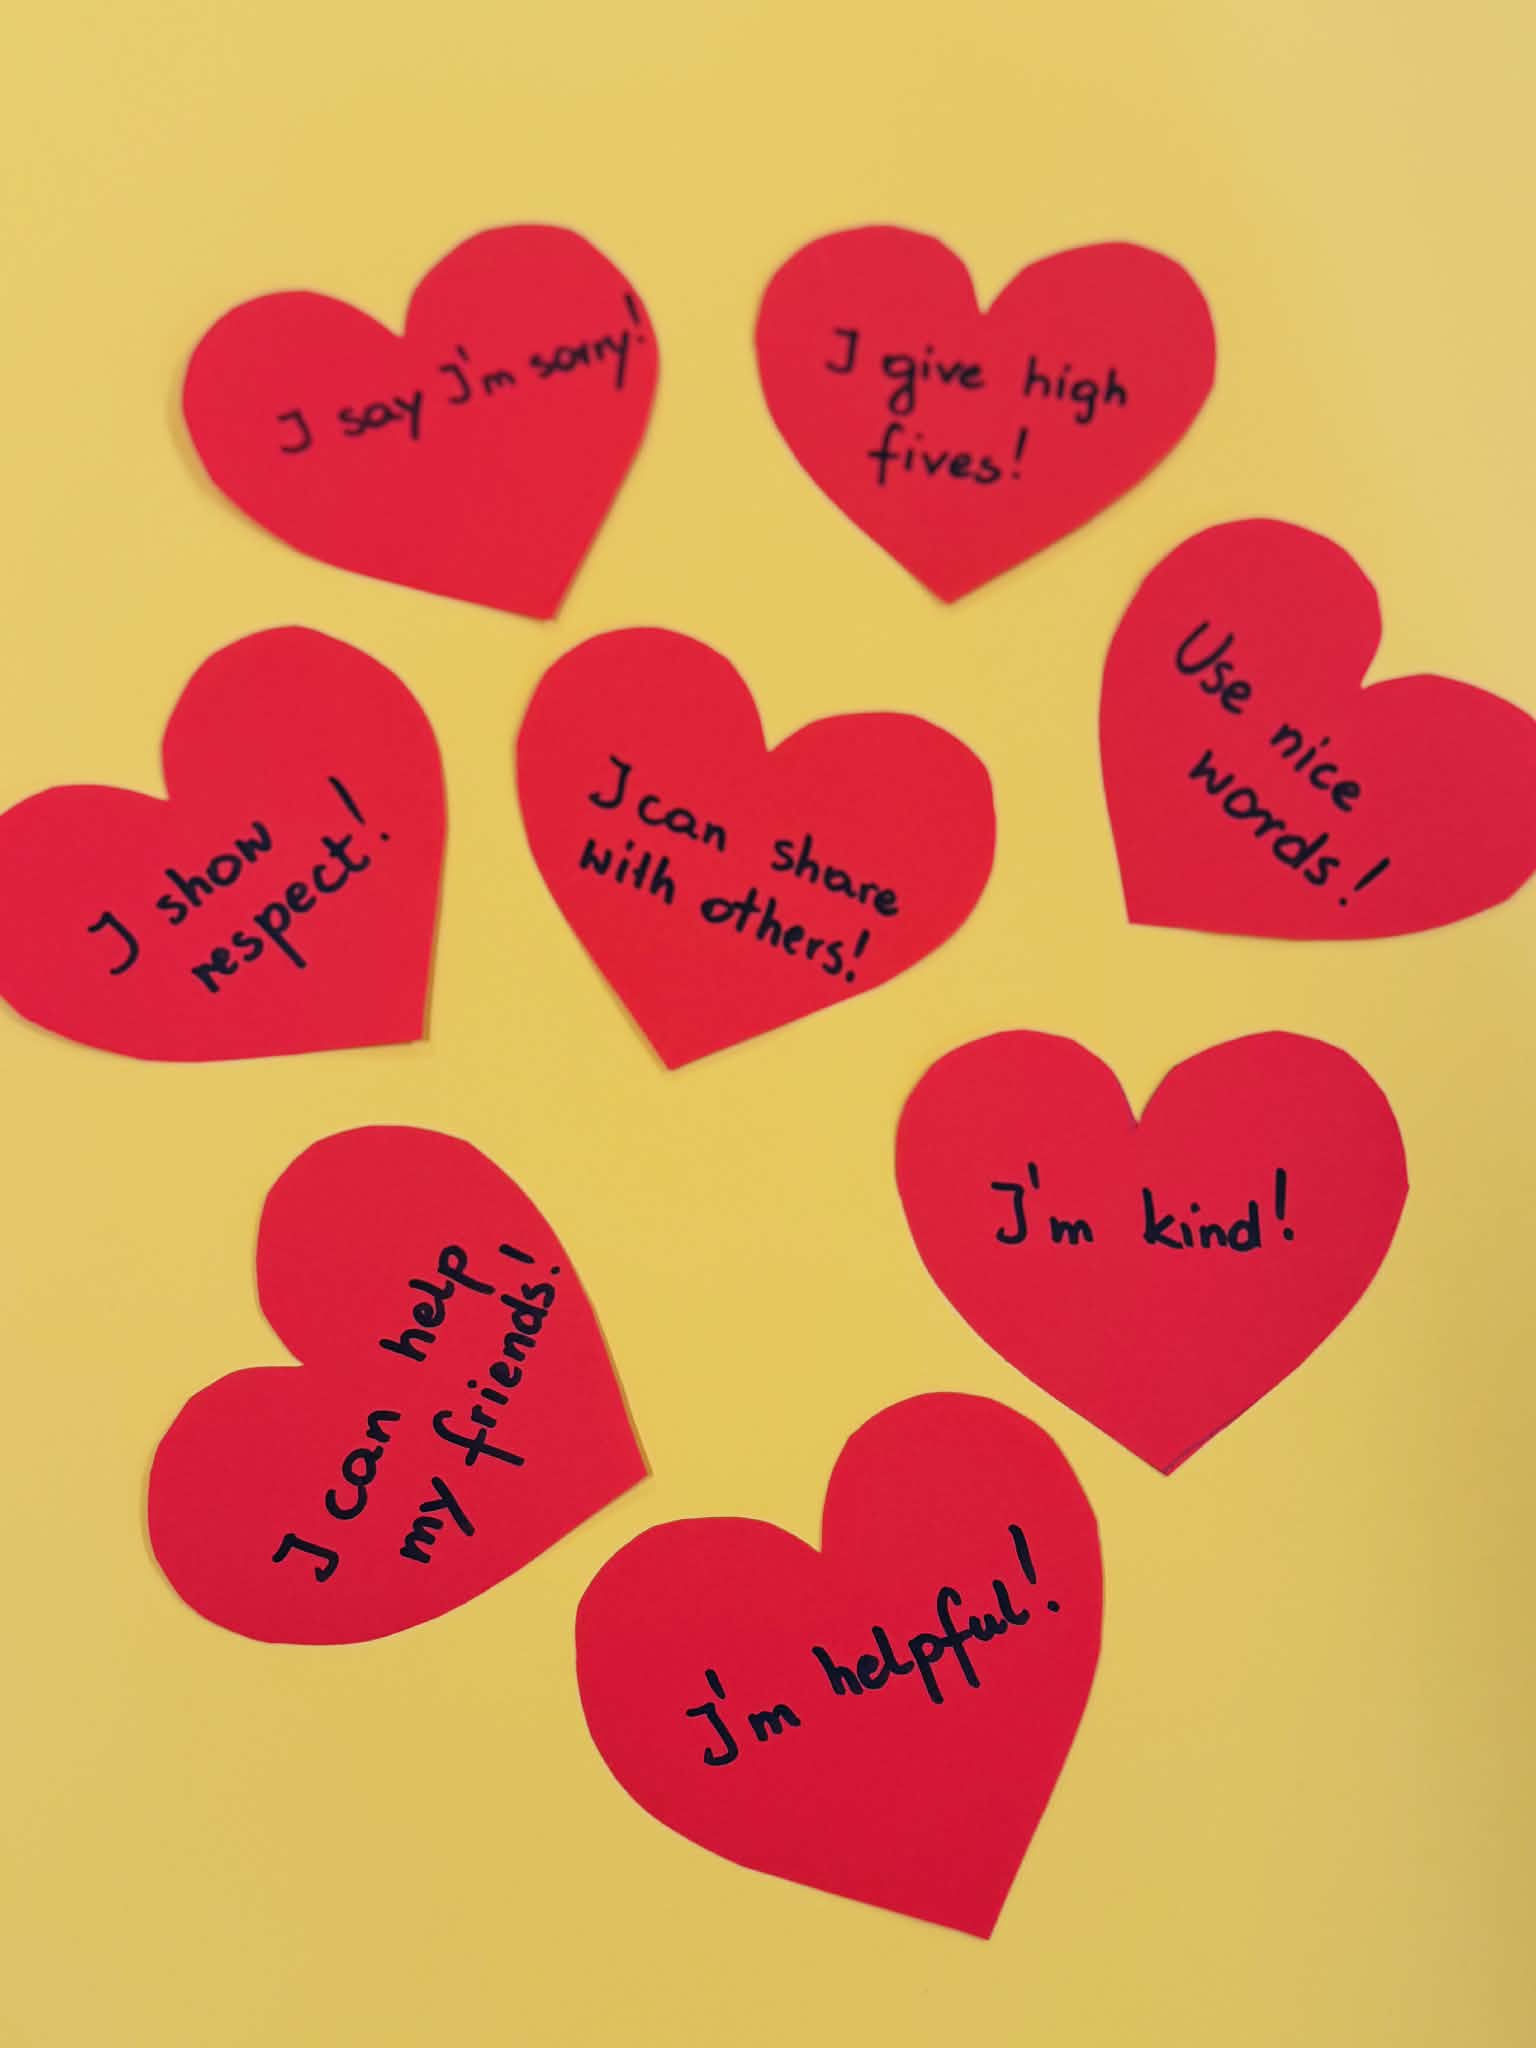 I say I'm sorry!
I give high
fives!
Use nice
words!
I show
respect!
I can share
with others!
I'm kind!
I can help
my friends!
I'm helpful!